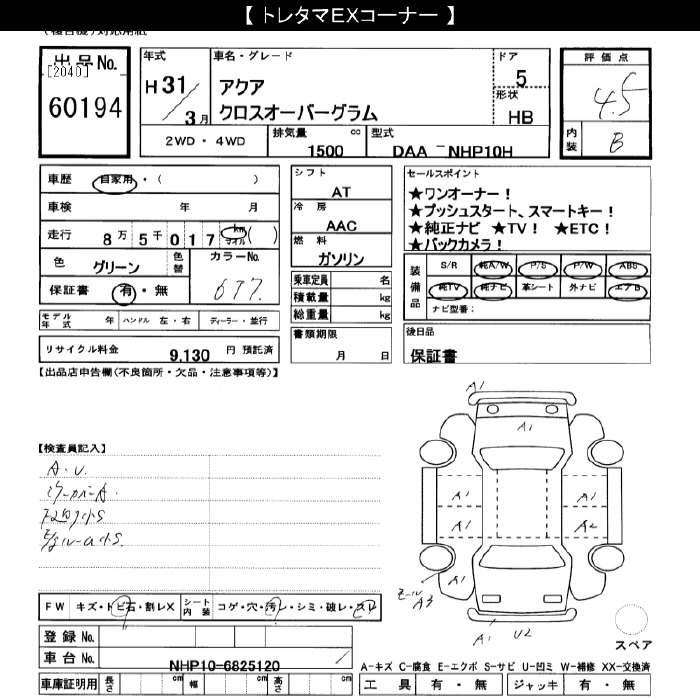 【 トレタマEXコーナー 】
(複合機)対応用紙
出品No.
[2040]
60194
年式
H 31/3月
車名・グレード
アクア
クロスオーバーグラム
ドア
5
形状
HB
評価点
4.5
内装
B
2WD・4WD
排気量 cc
1500
型式
DAA NHP10H
車歴 自家用・( )
車検 年 月
走行 8万5千017 km マイル ( )
色 グリーン 色替
カラーNo.
677.
保証書 有・無
シフト
AT
冷房
AAC
燃料
ガソリン
乗車定員 名
積載量 kg
総重量 kg
セールスポイント
★ワンオーナー！
★プッシュスタート、スマートキー！
★純正ナビ ★TV！ ★ETC！
★バックカメラ！
装備品
S/R 純A/W P/S P/W ABS
純TV 純ナビ 革シート 外ナビ エアB
ナビ型番：
モデル年式 年 ハンドル 左・右 ディーラー・並行
リサイクル料金 9,130 円 預託済
書類期限
月 日
後日品
保証書
【出品店申告欄(不良箇所・欠品・注意事項等)】
【検査員記入】
A・U.
A1
A1
A1 A1
A1 A2
A1
A3
A1 U2
スペア
FW キズ・トビ石・割レX
シート内装 コゲ・穴・汚レ・シミ・破レ・スレ
登録No.
車台No. NHP10-6825120
車庫証明用 長さ cm 幅 cm 高さ cm
A-キズ C-腐食 E-エクボ S-サビ U-凹ミ W-補修 XX-交換済
工具 有・無 ジャッキ 有・無